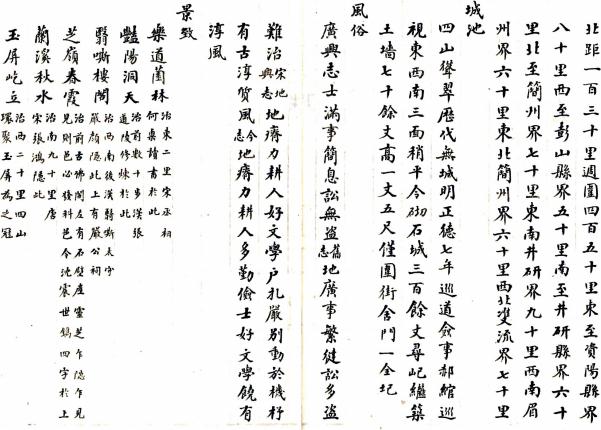 北距一百三十里週圍四百五十里東至資陽縣界
八十里西至彭山縣界五十里南至井研縣界六十
里北至簡州界七十里東南井研界九十里西南眉
州界六十里東北簡州界六十里西北雙流界七十里
城池
四山聳翠歷代無城明正德七年巡道僉事郝綰巡
視東西南三面稍平今砌石城三百餘丈尋圮繼築
土墻七十餘丈高一丈五尺僅圍街舍門一全圮
風俗
廣興志士滿事簡息訟無盜舊志地廣事繁健訟多盜
難治宋地輿志地瘠力耕人好文學戶扎嚴別動於機杼
有古淳質風今志地瘠力耕人多勤儉士好文學饒有
淳風
景致
樂道園林治東二里宋丞相何㮚讀書於此
豔陽洞天治前數十步漢張道陵修煉於此
翳嘶樓閣治西南後漢翳嘶太守嚴顏隐此上有嚴公祠
芝嶺春霞治前古佛閣左有石壁產靈芝乍隐乍見見則邑必發科邑令沈震世鐫四字於上
蘭溪秋水治南九十里唐宋張鴻隐此
玉屏屹立治西二十里四山環聚玉屏為之冠